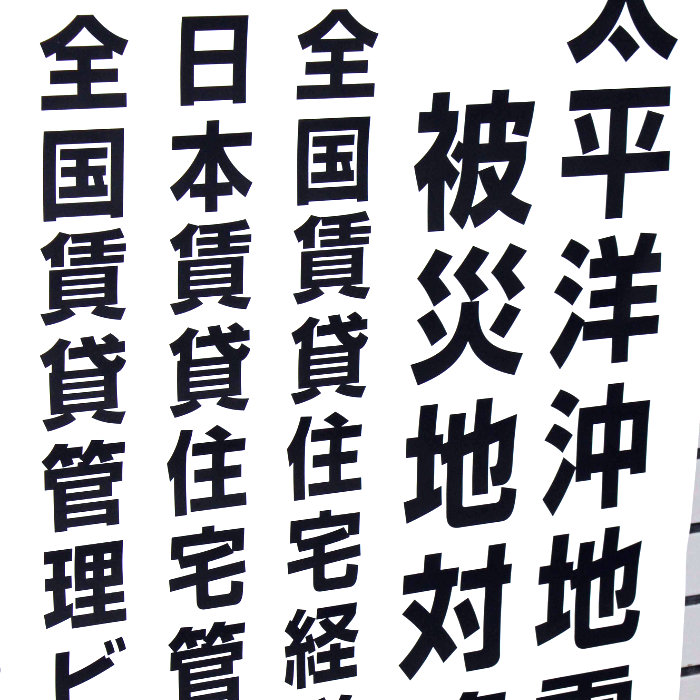 太平洋沖地
被災地対
全国賃貸住宅経
日本賃貸住宅管
全国賃貸管理ビ